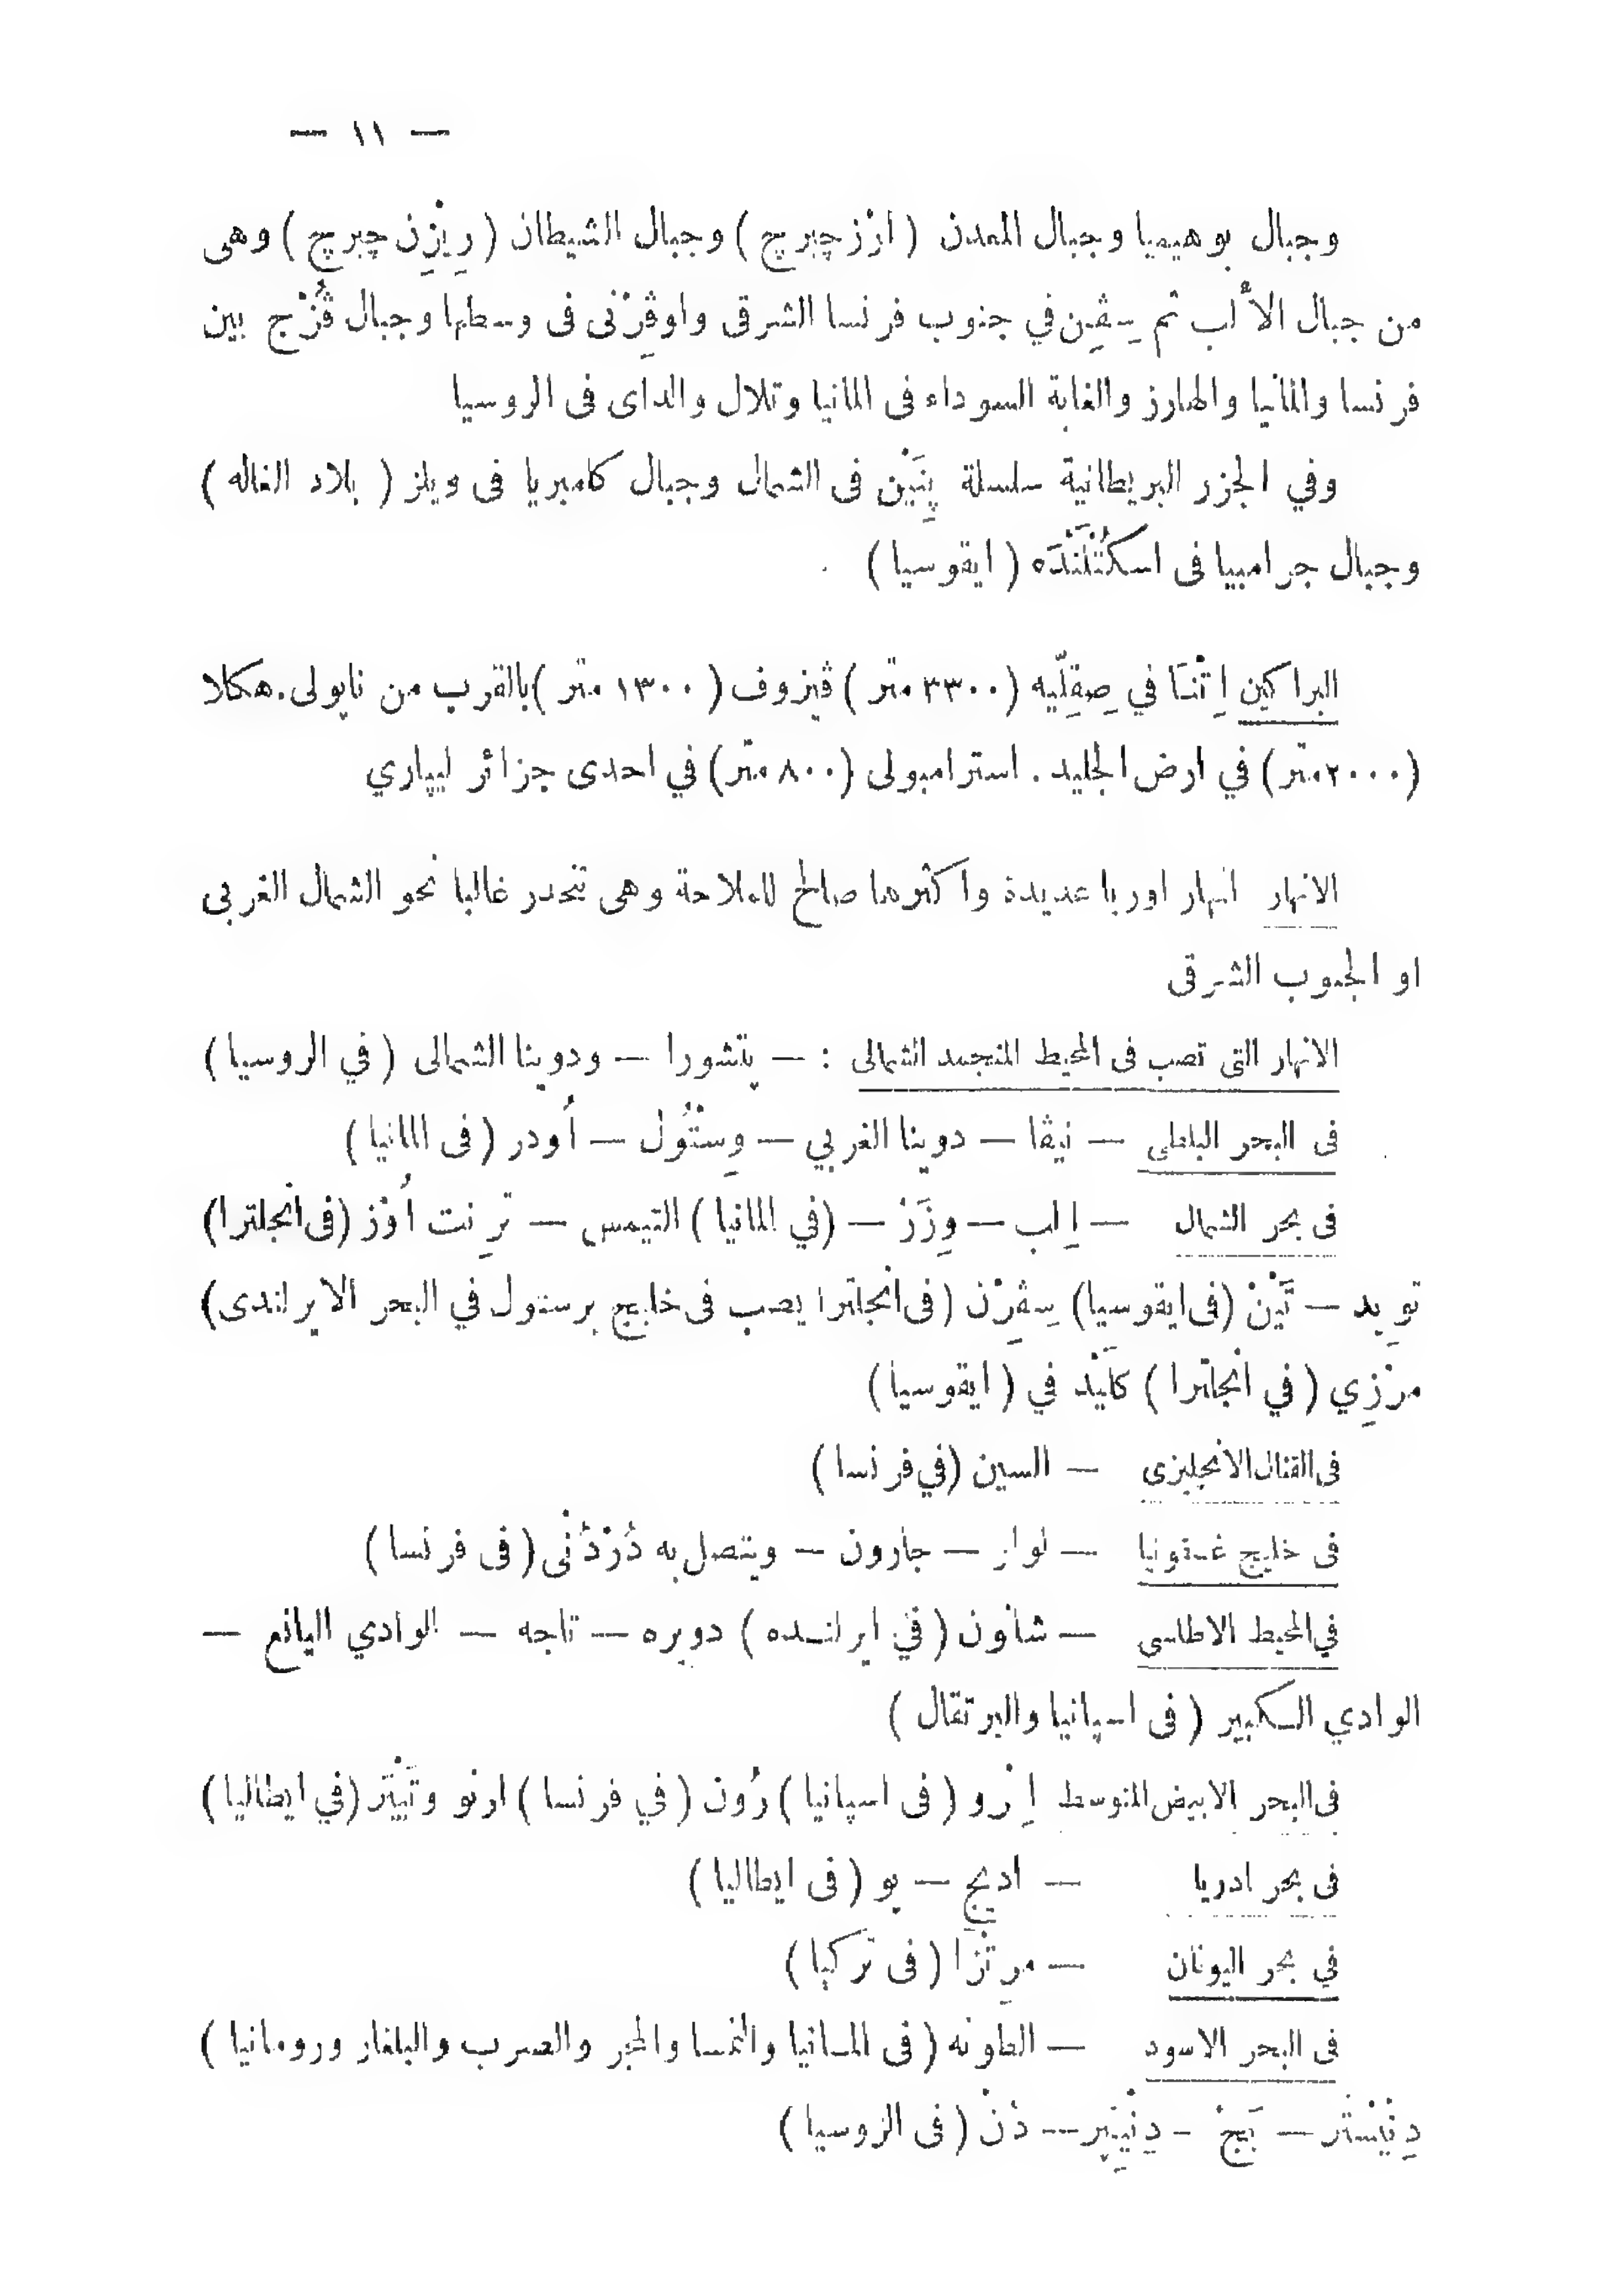 — ١١ —
وجبال بوهيميا وجبال المعدن ( ارْزجبرج ) وجبال الشيطان ( رِيزِن جبرج ) وهى
من جبال الألب ثم سِڤِن في جنوب فرنسا الشرقى واوڤِرْنى فى وسطها وجبال ڤُزْج بين
فرنسا والمانيا والهارز والغابة السوداء فى المانيا وتلال والداى فى الروسيا
وفي الجزر البريطانية سلسلة پِنَيْن فى الشمال وجبال كامبريا فى ويلز ( بلاد الغاله )
وجبال جرامبيا فى اسكُتْلَنْدَه ( ايقوسيا )
البراكين اِتْنَا في صِقِلّيه ( ٣٣٠٠ متر ) ڤيزوف ( ١٣٠٠ متر ) بالقرب من ناپولى. هكلا
( ٢٠٠٠ متر ) في ارض الجليد . استرامبولى ( ٨٠٠ متر ) في احدى جزائر ليپاري
الانهار انهار اوربا عديدة واكثرها صالح للملاحة وهى تنحدر غالبا نحو الشمال الغربى
او الجنوب الشرقى
الانهار التى تصب فى المحيط المنجمد الشمالى : — پتشورا — ودوينا الشمالى ( في الروسيا )
فى البحر البلطى — نيڤا — دوينا الغربي — وِسْتُول — أُودر ( فى المانيا )
فى بحر الشمال — اِلب — وِزَرْ — (في المانيا ) التيمس — ترِنت أُوْز (فى انجلترا)
توِيد — تَيْنْ (فى ايقوسيا) سِڤِرْن (فى انجلترا يصب فى خليج برستول في البحر الايرلندى)
مرْزِي ( في انجلترا ) كلَيْد في ( ايقوسيا )
فى القنال الانجليزى — السين (في فرنسا )
فى خليج غسقونيا — لوار — جارون — ويتصل به دُرْدُنْى ( فى فرنسا )
في المحيط الاطلسى — شانون ( في ايرلنـده ) دويره — تاجه — الوادي اليانع —
الوادي الكبير ( فى اسپانيا والبرتقال )
فى البحر الابيض المتوسط اِبْرو ( فى اسپانيا ) رُون ( في فرنسا ) ارنو وتَيْبْر (في ايطاليا )
فى بحر ادريا — اديج — پو ( فى ايطاليا )
في بحر اليونان — مرِتْزَا ( فى تركيا )
فى البحر الاسود — الطونه ( فى المـانيا والنمسا والمجر والصرب والبلغار ورومانيا )
دِنْيَسْتَر — بَجْ — دِنْيَپِر — دُنْ ( فى الروسيا )